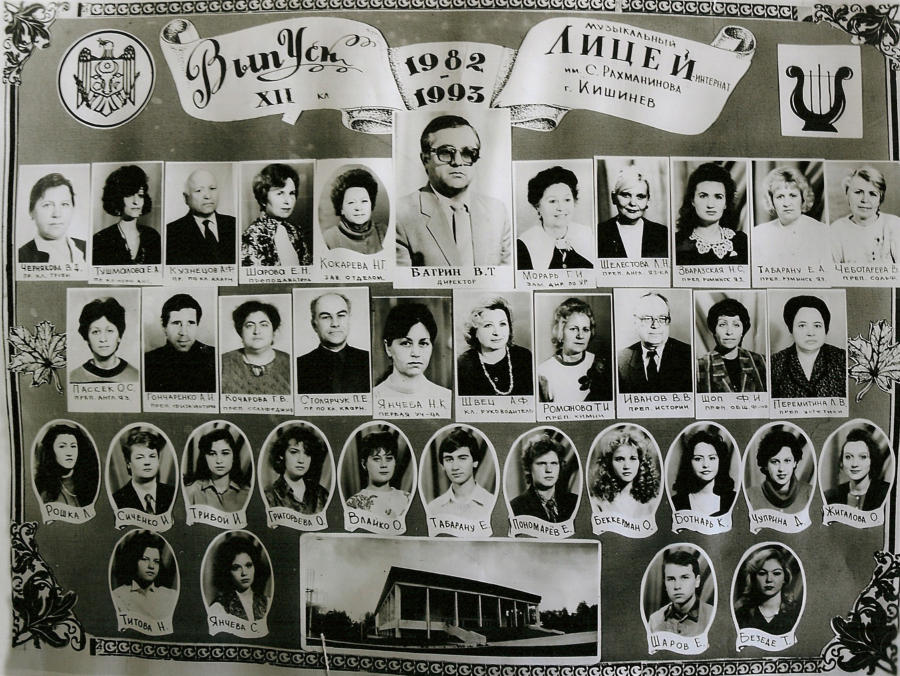 ВыпУск
XII кл
1982
-
1993
МУЗЫКАЛЬНЫЙ
ЛИЦЕЙ-ИНТЕРНАТ
им. С. РАХМАНИНОВА
г. КИШИНЕВ
ЧЕРНЯКОВА В.Д.
ТУШМАЛОВА Е.А.
КУЗНЕЦОВ А.Ф
ПР ПО КЛ. КЛАРН.
ШАРОВА Е.Н.
ПРЕПОДАВАТЕЛЬ
КОКАРЕВА Н.Г
ЗАВ ОТДЕЛОМ
БАТРИН В.Т
ДИРЕКТОР
МОРАРЬ Г.И
ЗАМ. ДИР. ПО УР
ШЕЛЕСТОВА Л.Н
ПРЕП. АНГЛ. ЯЗ-КА
ЗБАРАЗСКАЯ Н.С.
ПРЕП. РУМЫНСК. ЯЗ.
ТАБАРАНУ Е.А.
ПРЕП. РУМЫНСК. ЯЗ.
ЧЕБОТАРЕВА В.
ПРЕП. СОЛЬФ.
ПАССЕК О.С.
ПРЕП. АНГЛ. ЯЗ.
ГОНЧАРЕНКО А.И
ПРЕП. ФИЗКУЛЬТУРЫ
КОЧАРОВА Г.В.
ПРЕП. СОЛЬФЕДЖИО
СТОЛЯРЧУК П.Е
ПР ПО КЛ. КЛАРН.
ЯНЧЕВА Н.К.
ПЕРВАЯ УЧ-ЦА
ШВЕЦ А.Ф
КЛ. РУКОВОДИТЕЛЬ
РОМАНОВА Т.И
ПРЕП. ХИМИИ
ИВАНОВ В.В
ПРЕП. ИСТОРИИ
ШОП Ф.И.
ПРЕП ОБЩ. Ф-НО
ПЕРЕМИТИНА Л.В
ПРЕП. ЭСТЕТИКИ
РОШКА Л.
СИЧЕНКО И.
ТРИБОЙ И.
ГРИГОРЬЕВА О.
ВЛАЙКО О.
ТАБАРАНУ Е.
ПОНОМАРЁВ Е.
БЕККЕРМАН О.
БОТНАРЬ К.
ЧУПРИНА Д.
ЖИГАЛОВА О.
ТИТОВА Н.
ЯНЧЕВА С.
ШАРОВ Е.
БЕЗЕДЕ Т.